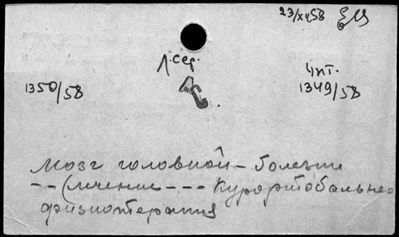 23/XII 58
1 сер.
1350/58
чит.
1349/58
Мозг головной - болезни
-- (лечение --- Курортобальнео
физиотерапия